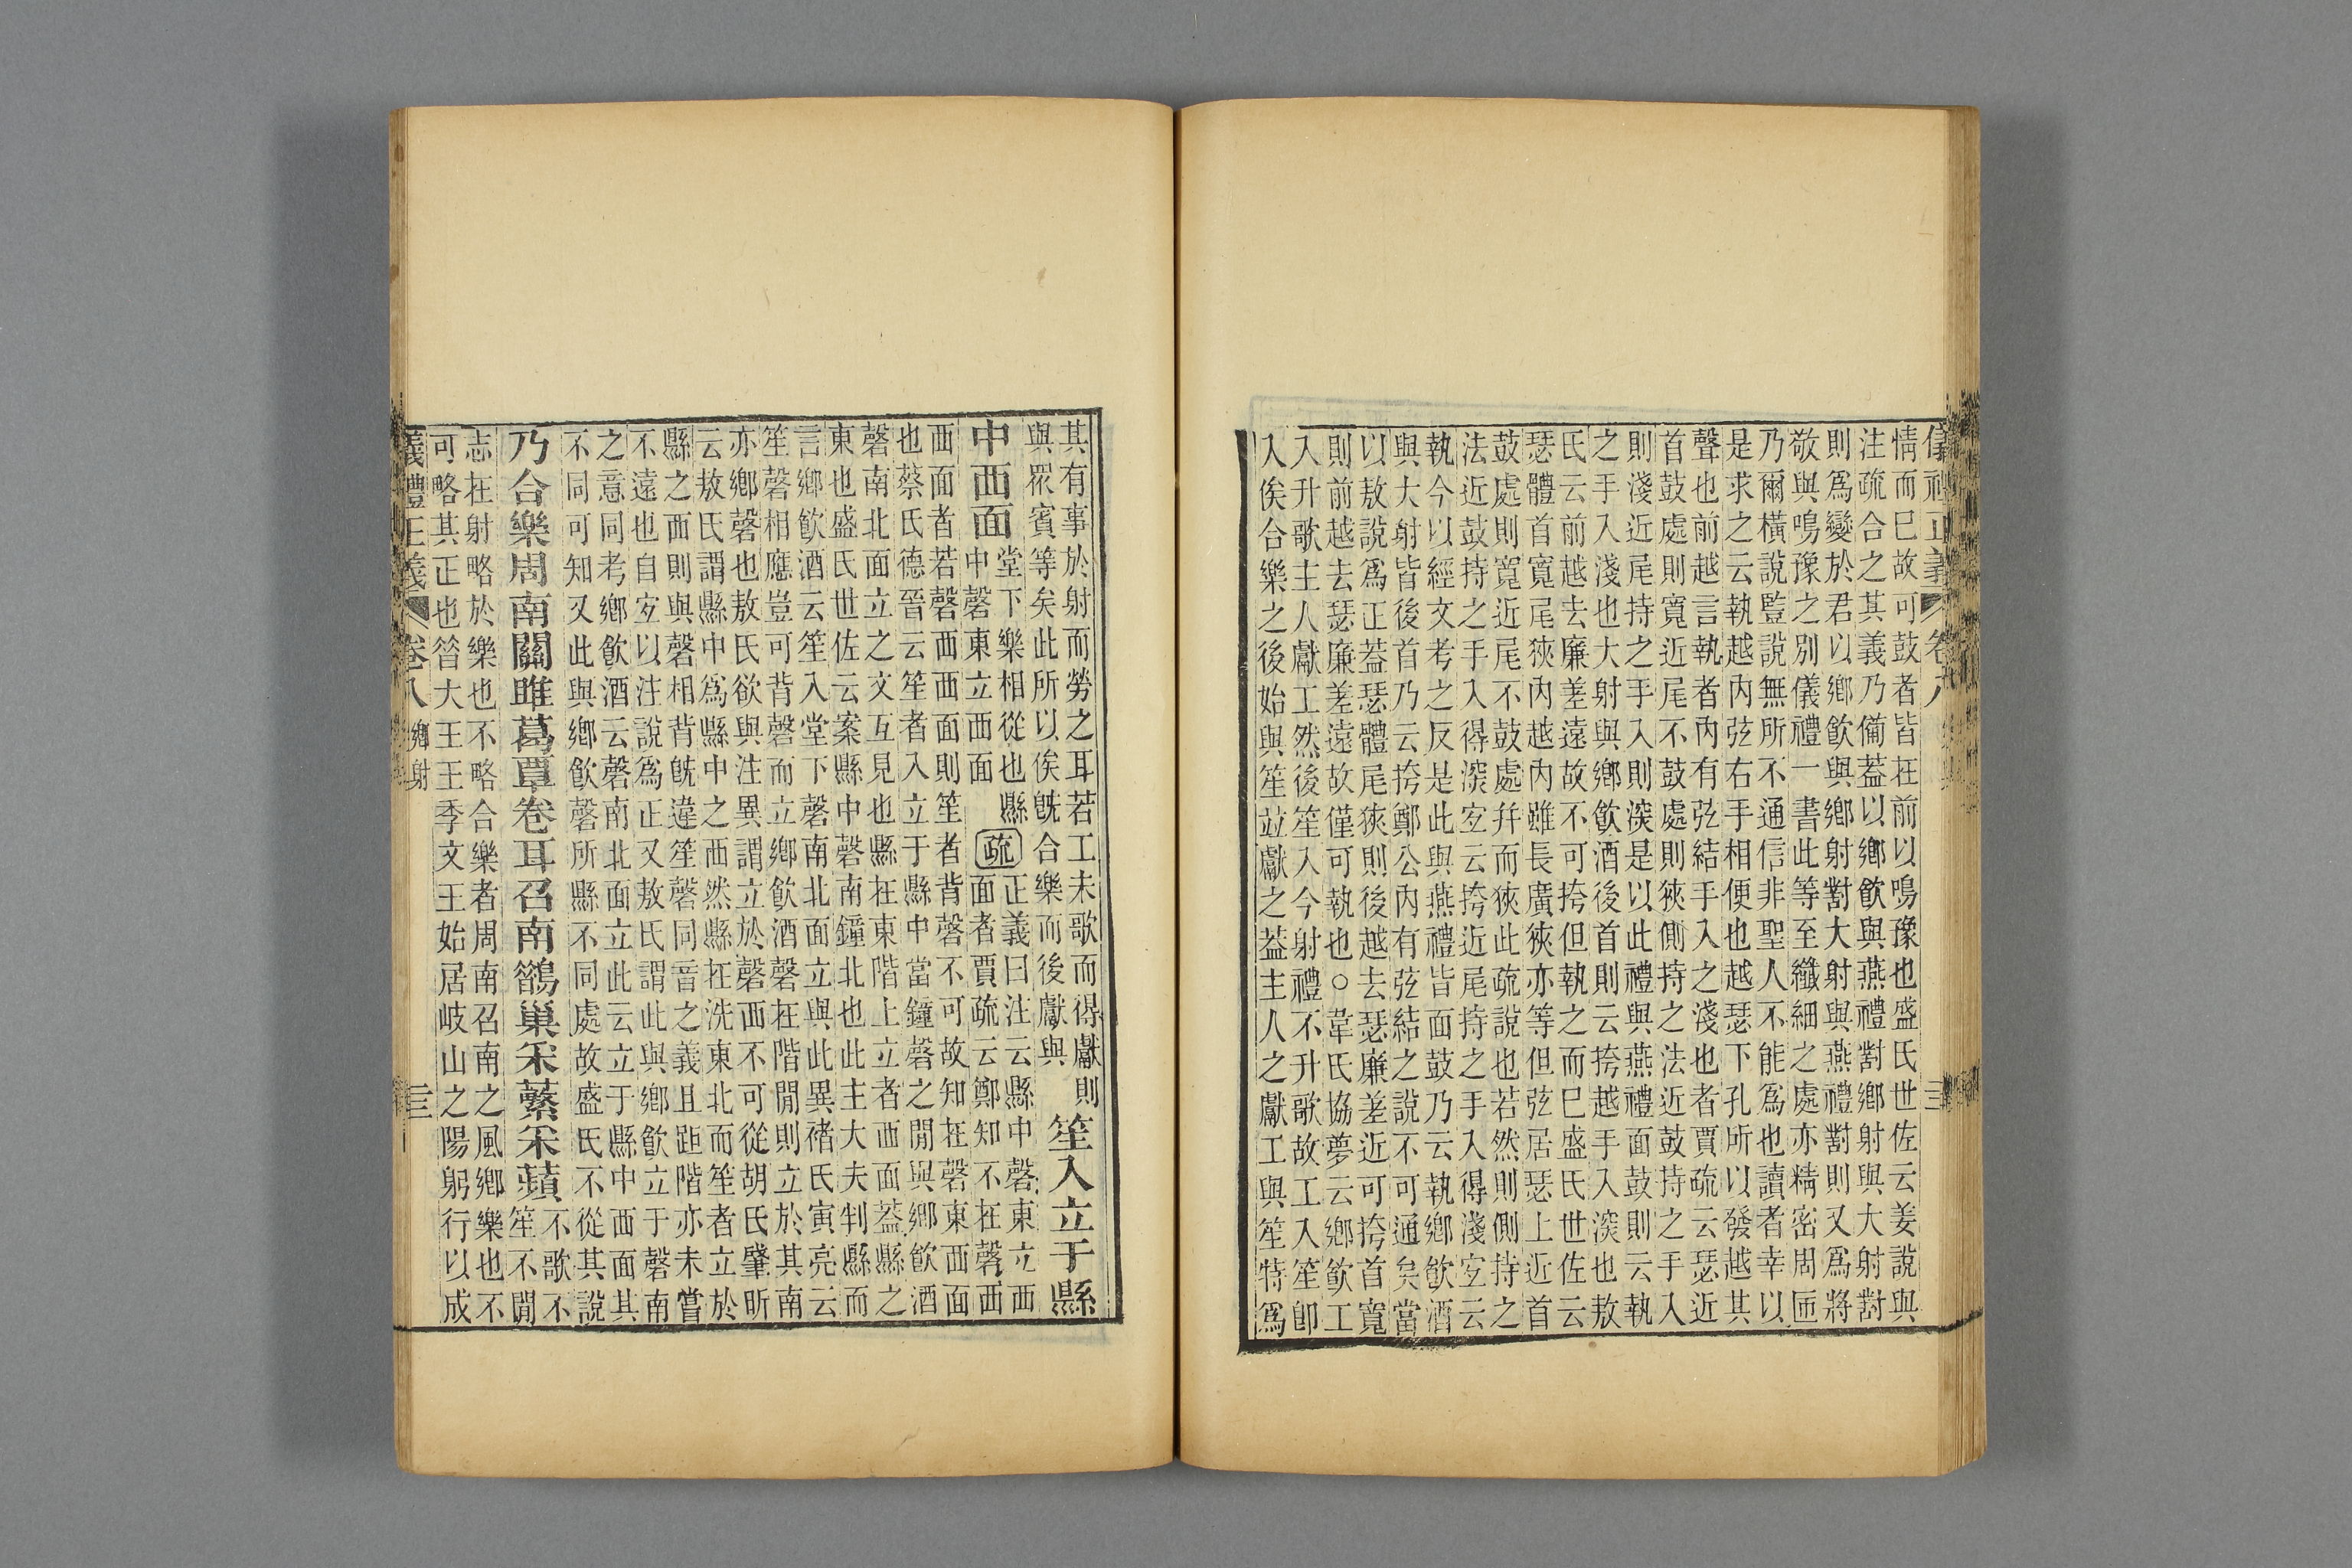 儀禮正義 卷八
情而已故可鼓者皆在前以鳴豫也盛氏世佐云姜說與
注疏合之其義乃備葢以鄉飮與燕禮對鄉射與大射對
則爲變於君以鄉飮與鄉射對大射與燕禮對則又爲將
敬與鳴豫之別儀禮一書此等至纖細之處亦精密周匝
乃爾橫說監說無所不通信非聖人不能爲也讀者幸以
是求之云執越內弦右手相便也越瑟下孔所以發越其
聲也前越言執者內有弦結手入之淺也者賈疏云瑟近
首鼓處則寬近尾不鼓處則狹側持之法近鼓持之手入
則淺近尾持之手入則深是以此禮與燕禮面鼓則云執
之手入淺也大射與鄉飮酒後首則云挎越手入深也敖
氏云前越去廉差遠故不可挎但執之而已盛氏世佐云
瑟體首寬尾狹內越內雖長廣狹亦等但弦居瑟上近首
鼓處則寬近尾不鼓處幷而狹此疏說也若然則側持之
法近鼓持之手入得深宐云挎近尾持之手入得淺宐云
執今以經文考之反是此與燕禮皆面鼓乃云執鄉飮酒
與大射皆後首乃云挎鄭公內有弦結之說不可通矣當
以敖說爲正葢瑟體尾狹則後越去瑟廉差近可挎首寬
則前越去瑟廉差遠故僅可執也○韋氏協夢云鄉飮工
入升歌主人獻工然後笙入今射禮不升歌故工入笙卽
入俟合樂之後始與笙竝獻之葢主人之獻工與笙特爲
其有事於射而勞之耳若工未歌而得獻則
與眾賓等矣此所以俟旣合樂而後獻與
笙入立于縣
中西面
堂下樂相從也縣
中磬東立西面
疏
正義曰注云縣中磬東立西
面者賈疏云鄭知不在磬西
西面者若磬西西面則笙者背磬不可故知在磬東西面
也蔡氏德晉云笙者入立于縣中當鐘磬之閒與鄉飮酒
磬南北面立之文互見也縣在東階上立者西面葢縣之
東也盛氏世佐云案縣中磬南鐘北也此主大夫判縣而
言鄉飮酒云笙入堂下磬南北面立與此異褚氏寅亮云
笙磬相應豈可背磬而立鄉飮酒磬在階閒則立於其南
亦鄉磬也敖氏欲與注異謂立於磬西不可從胡氏肇昕
云敖氏謂縣中爲縣中之西然縣在洗東北而笙者立於
縣之西則與磬相背旣違笙磬同音之義且距階亦未嘗
不遠也自宐以注說爲正又敖氏謂此與鄉飮立于磬南
之意同考鄉飮酒云磬南北面立此云立于縣中西面其
不同可知又此與鄉飮磬所縣不同處故盛氏不從其說
乃合樂周南關雎葛覃卷耳召南鵲巢采蘩采蘋
不歌不
笙不閒
志在射略於樂也不略合樂者周南召南之風鄉樂也不
可略其正也昝大王王季文王始居岐山之陽躬行以成
義禮正義 卷八 鄉射